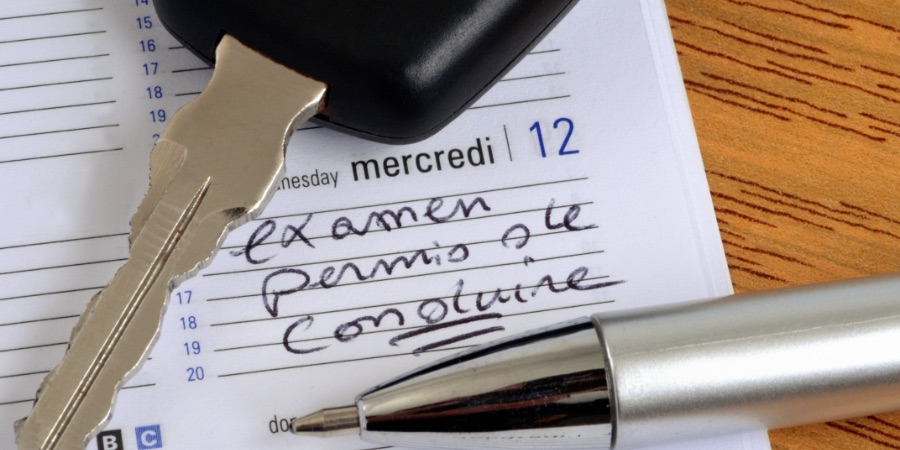 14
15
16
17
18
19
mercredi 12
examen
permis de
conduire
17
18
19
20
B C